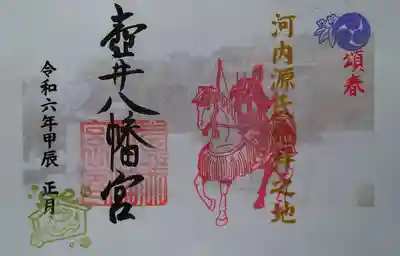 頌春
河内源氏祥之地
壺井八幡宮
令和六年甲辰 正月